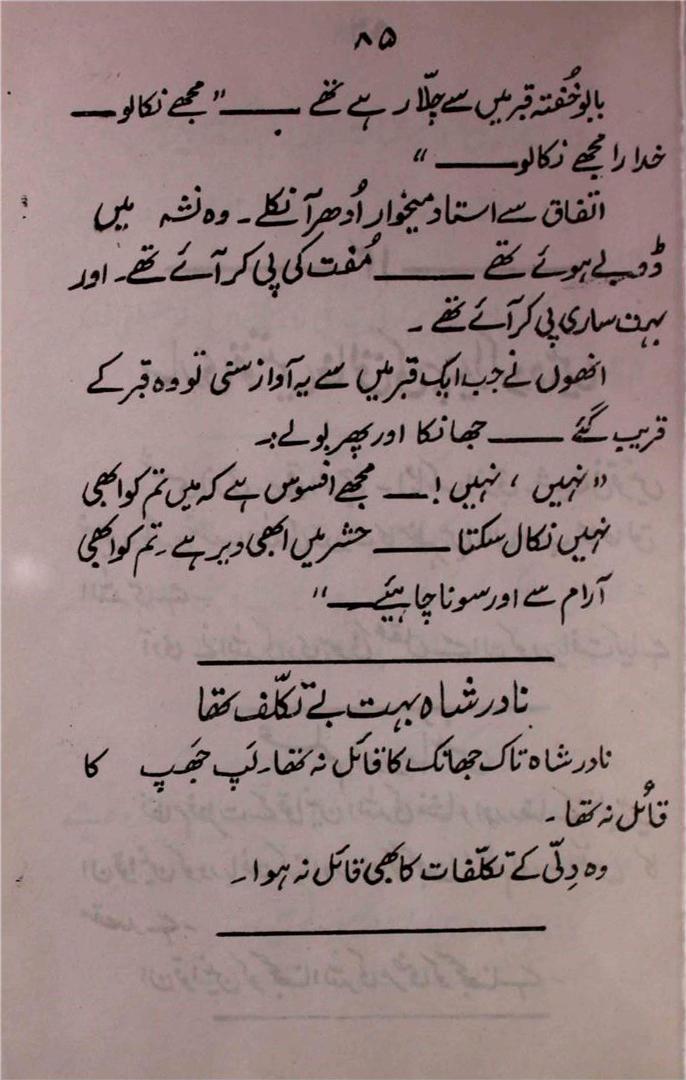 ۸۵
بابو خُفتہ قبر میں سے چلّا رہے تھے ــــــ "مجھے نکالو ــــ
خدارا مجھے نکالو ــــــ "
اتفاق سے استاد میخوار اُدھر آ نکلے۔ وہ نشہ میں
ڈوبے ہوئے تھے ــــــ مُفت کی پی کر آئے تھے۔ اور
بہت ساری پی کر آئے تھے۔
انھوں نے جب ایک قبر میں سے یہ آواز سنی تو وہ قبر کے
قریب گئے ــــــ جھانکا اور پھر بولے:۔
"نہیں، نہیں! ــــ مجھے افسوس ہے کہ میں تم کو ابھی
نہیں نکال سکتا ــــــ حشر میں ابھی دیر ہے۔ تم کو ابھی
آرام سے اور سونا چاہئیے ــــــ "
نادر شاہ بہت بے تکلّف تھا
نادر شاہ تاک جھانک کا قائل نہ تھا۔ لَپ جَھپ کا
قائل نہ تھا۔
وہ دِلّی کے تکلّفات کا بھی قائل نہ ہوا۔